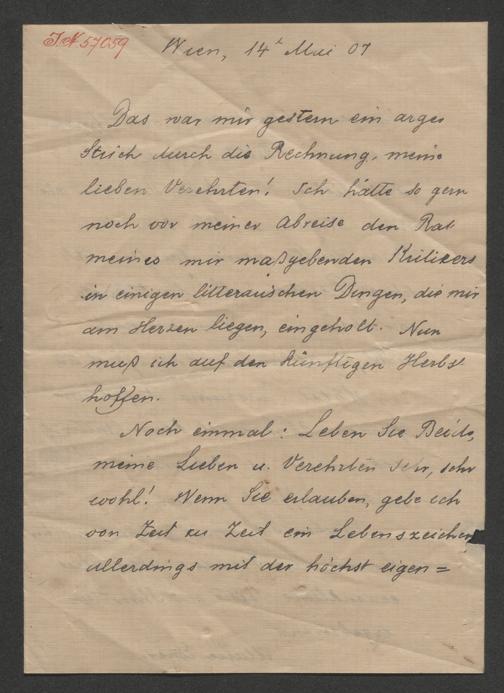 I.N. 57059
Wien, 14t Mai 07
Das war mir gestern ein arger
Strich durch die Rechnung, meine
lieben Verehrten! Ich hätte so gern
noch vor meiner Abreise den Rat
meines mir maßgebenden Kritikers
in einigen litterarischen Dingen, die mir
am Herzen liegen, eingeholt. Nun
muß ich auf den künftigen Herbst
hoffen.
Noch einmal: Leben Sie Beide,
meine Lieben u. Verehrten sehr, sehr
wohl! Wenn Sie erlauben, gebe ich
von Zeit zu Zeit ein Lebenszeichen
allerdings mit der höchst eigen=